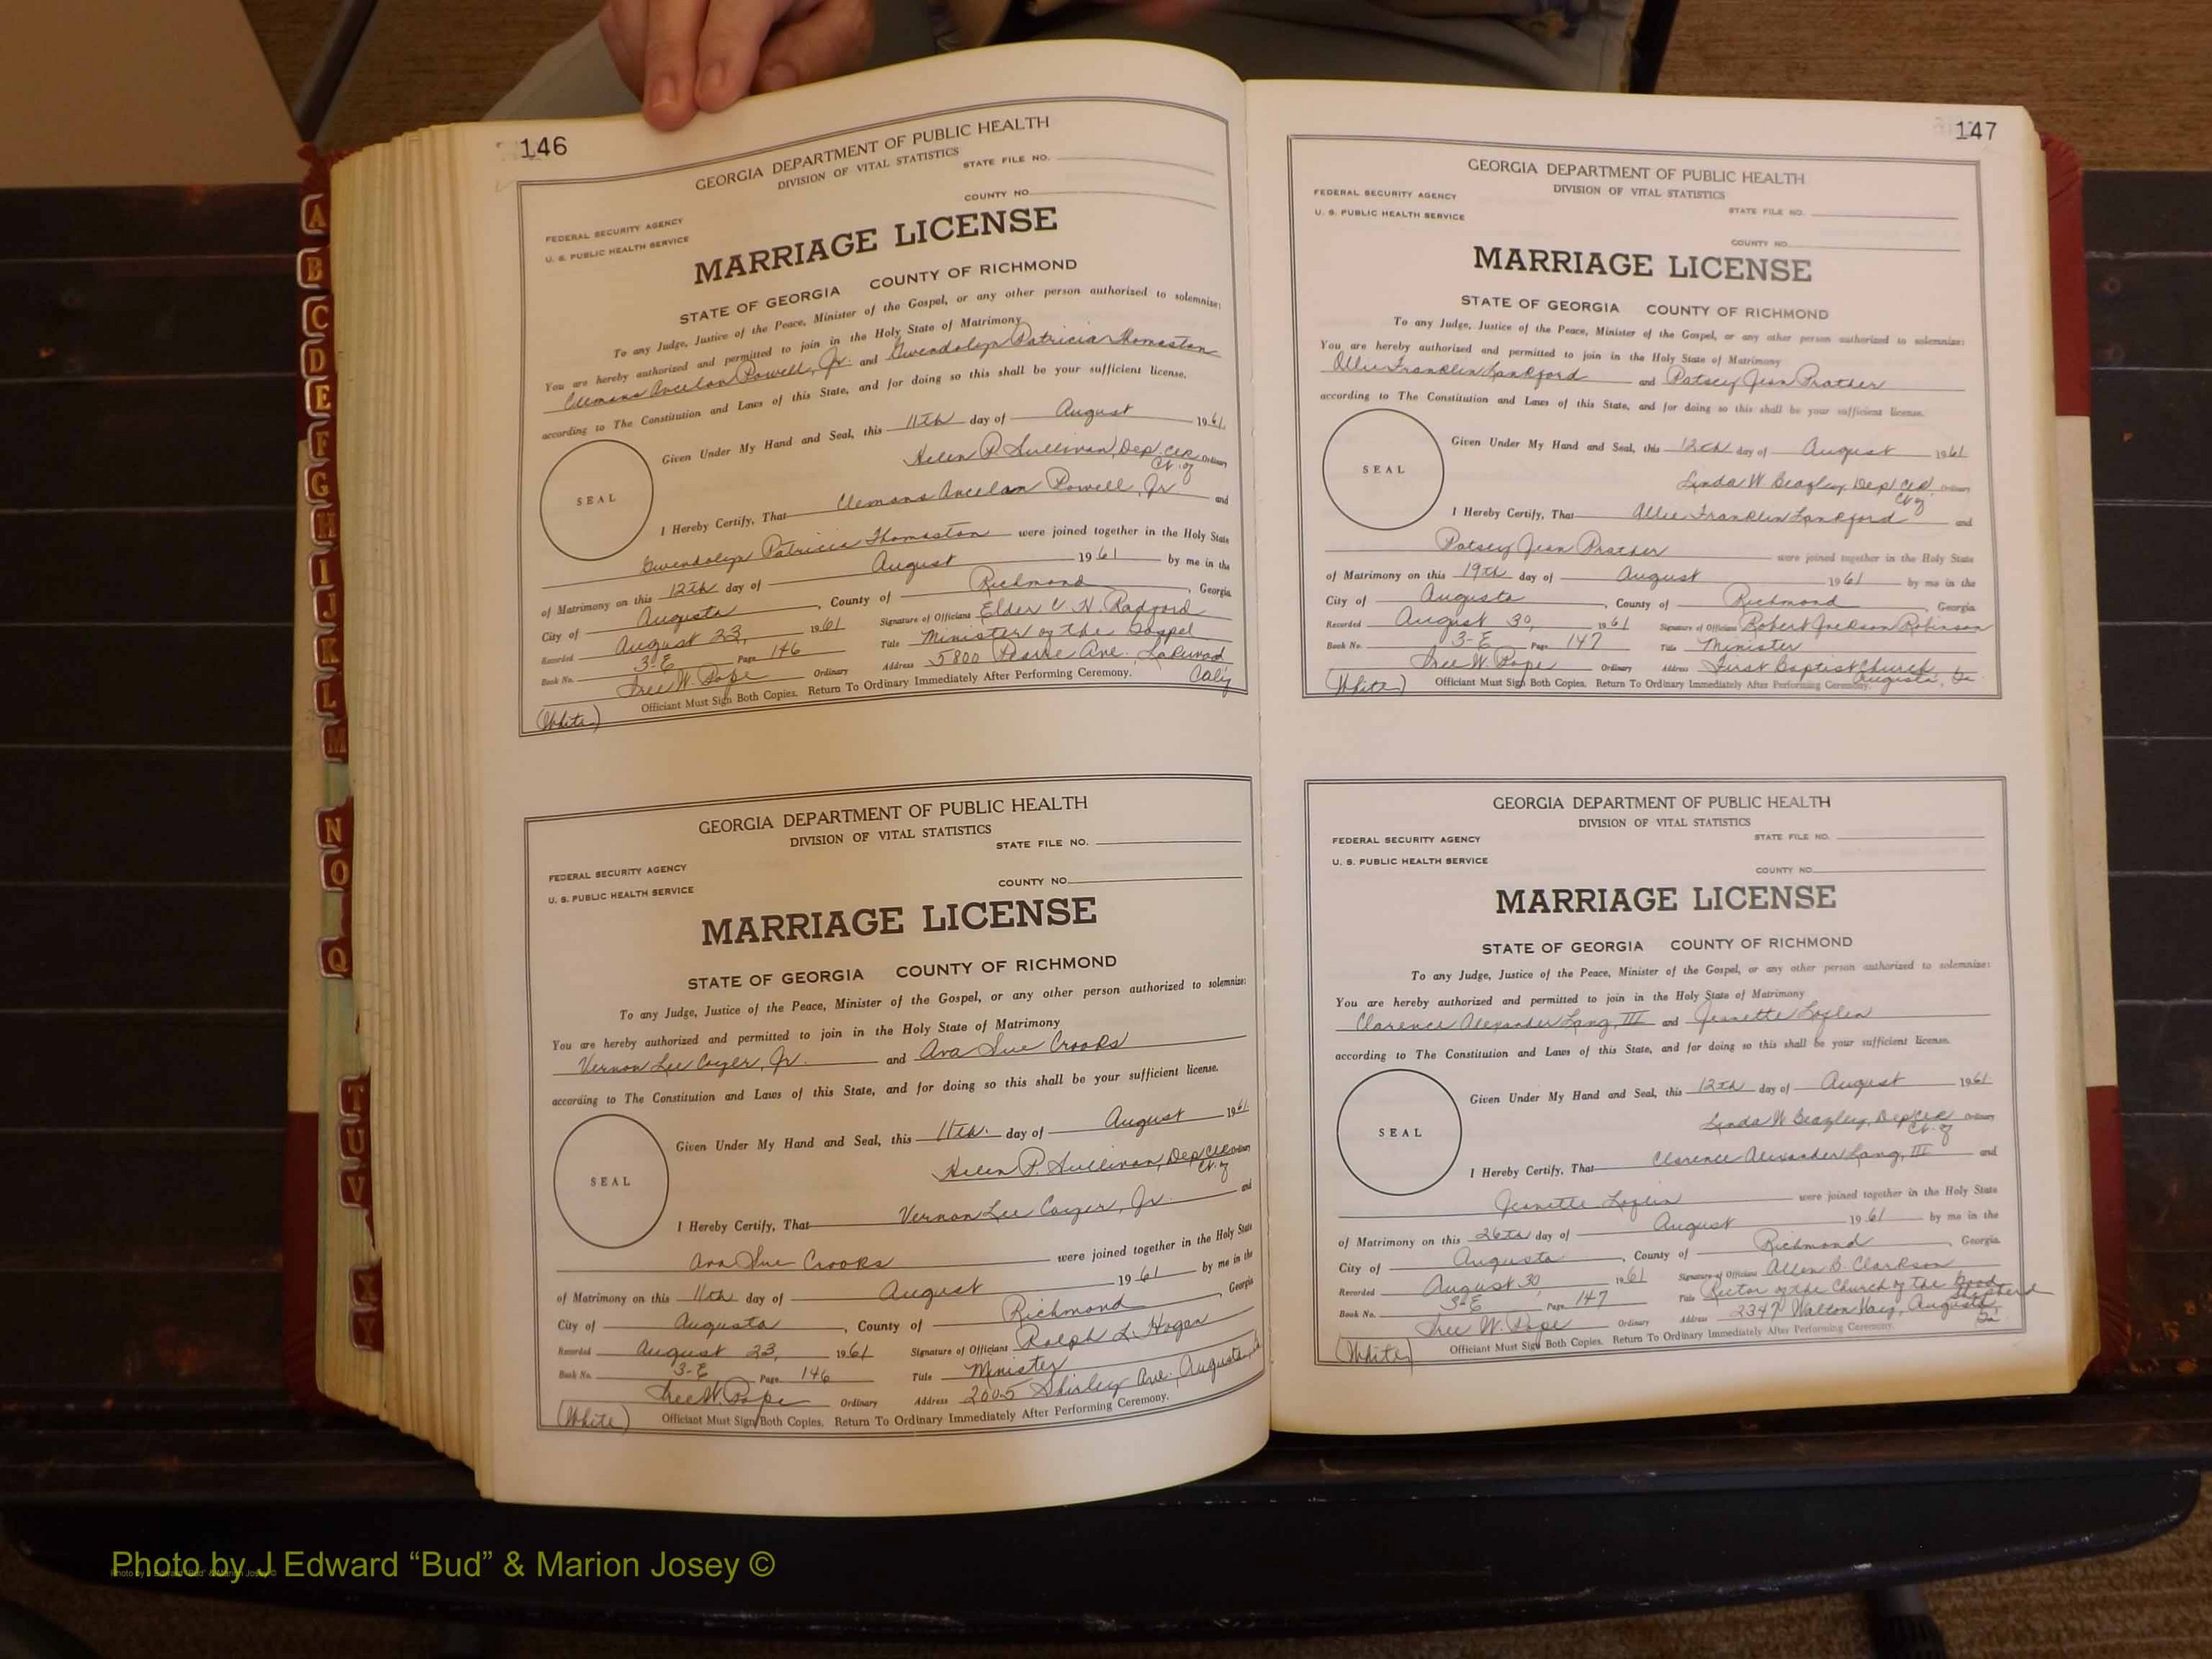 146
GEORGIA DEPARTMENT OF PUBLIC HEALTH
DIVISION OF VITAL STATISTICS
STATE FILE NO.
COUNTY NO.
FEDERAL SECURITY AGENCY
U. S. PUBLIC HEALTH SERVICE
MARRIAGE LICENSE
STATE OF GEORGIA COUNTY OF RICHMOND
To any Judge, Justice of the Peace, Minister of the Gospel, or any other person authorized to solemnize:
You are hereby authorized and permitted to join in the Holy State of Matrimony
Clemans Ancelan Powell, Jr. and Gwendolyn Patricia Thomaston
according to The Constitution and Laws of this State, and for doing so this shall be your sufficient license.
Given Under My Hand and Seal, this 11th day of August 1961
Helen P. Sullivan, Dep. Clk. Ordinary
Ct. of
SEAL
I Hereby Certify, That Clemans Ancelan Powell, Jr. and
Gwendolyn Patricia Thomaston were joined together in the Holy State
of Matrimony on this 12th day of August 1961 by me in the
City of Augusta, County of Richmond, Georgia
Recorded August 23, 1961 Signature of Officiant Elder V. H. Radford
Book No. 3-E Page 146 Title Minister of the Gospel
Tree W. Pope Ordinary Address 5800 Ave. Lakewood
Calif
(White) Officiant Must Sign Both Copies. Return To Ordinary Immediately After Performing Ceremony.
GEORGIA DEPARTMENT OF PUBLIC HEALTH
DIVISION OF VITAL STATISTICS
STATE FILE NO.
FEDERAL SECURITY AGENCY
U. S. PUBLIC HEALTH SERVICE
COUNTY NO.
MARRIAGE LICENSE
STATE OF GEORGIA COUNTY OF RICHMOND
To any Judge, Justice of the Peace, Minister of the Gospel, or any other person authorized to solemnize:
You are hereby authorized and permitted to join in the Holy State of Matrimony
Vernon Lee Coyer, Jr. and Ava Sue Crooks
according to The Constitution and Laws of this State, and for doing so this shall be your sufficient license.
Given Under My Hand and Seal, this 11th. day of August 1961
Helen P. Sullivan, Dep. Clk. Ordinary
Ct. of
SEAL
I Hereby Certify, That Vernon Lee Coyer, Jr. and
Ava Sue Crooks were joined together in the Holy State
of Matrimony on this 11th day of August 1961 by me in the
City of Augusta, County of Richmond Georgia
Recorded August 23, 1961 Signature of Officiant Ralph L. Hogan
Book No. 3-E Page 146 Title Minister
Tree W. Pope Ordinary Address 2005 Shirley Ave., Augusta,
(White) Officiant Must Sign Both Copies. Return To Ordinary Immediately After Performing Ceremony.
147
GEORGIA DEPARTMENT OF PUBLIC HEALTH
DIVISION OF VITAL STATISTICS
FEDERAL SECURITY AGENCY
U. S. PUBLIC HEALTH SERVICE
STATE FILE NO.
COUNTY NO.
MARRIAGE LICENSE
STATE OF GEORGIA COUNTY OF RICHMOND
To any Judge, Justice of the Peace, Minister of the Gospel, or any other person authorized to solemnize:
You are hereby authorized and permitted to join in the Holy State of Matrimony
Ollie Franklin Lankford and Patsey Jean Prather
according to The Constitution and Laws of this State, and for doing so this shall be your sufficient license.
Given Under My Hand and Seal, this 12th day of August 1961
Linda W. Beazley, Dep. Clk. Ordinary
Ct. of
SEAL
I Hereby Certify, That Allie Franklin Lankford and
Patsey Jean Prather were joined together in the Holy State
of Matrimony on this 19th day of August 1961 by me in the
City of Augusta, County of Richmond, Georgia
Recorded August 30, 1961 Signature of Officiant Robert Jackson Robinson
Book No. 3-E Page 147 Title Minister
Tree W. Pope Ordinary Address First Baptist Church
Augusta, Ga.
(White) Officiant Must Sign Both Copies. Return To Ordinary Immediately After Performing Ceremony.
GEORGIA DEPARTMENT OF PUBLIC HEALTH
DIVISION OF VITAL STATISTICS
FEDERAL SECURITY AGENCY
STATE FILE NO.
U. S. PUBLIC HEALTH SERVICE
COUNTY NO.
MARRIAGE LICENSE
STATE OF GEORGIA COUNTY OF RICHMOND
To any Judge, Justice of the Peace, Minister of the Gospel, or any other person authorized to solemnize:
You are hereby authorized and permitted to join in the Holy State of Matrimony
Clarence Alexander Lang, III and Jeanette Loflin
according to The Constitution and Laws of this State, and for doing so this shall be your sufficient license.
Given Under My Hand and Seal, this 12th day of August 1961
Linda W Beazley, Dep. Clk. Ordinary
Ct. of
SEAL
I Hereby Certify, That Clarence Alexander Lang, III and
Jeanette Loflin were joined together in the Holy State
of Matrimony on this 26th day of August 1961 by me in the
City of Augusta, County of Richmond, Georgia
Recorded August 30, 1961 Signature of Officiant Allen B. Clarkson
Book No. 3-E Page 147 Title Rector of the Church of the Good
Shepherd
Tree W. Pope Ordinary Address 2347 Walton Way, Augusta,
Ga
(White) Officiant Must Sign Both Copies. Return To Ordinary Immediately After Performing Ceremony.
A
B
C
D
E
F
G
H
I
J
K
L
M
N
O
Q
T
U
V
X
Y
Photo by J Edward “Bud” & Marion Josey ©
Photo by J Edward “Bud” & Marion Josey ©